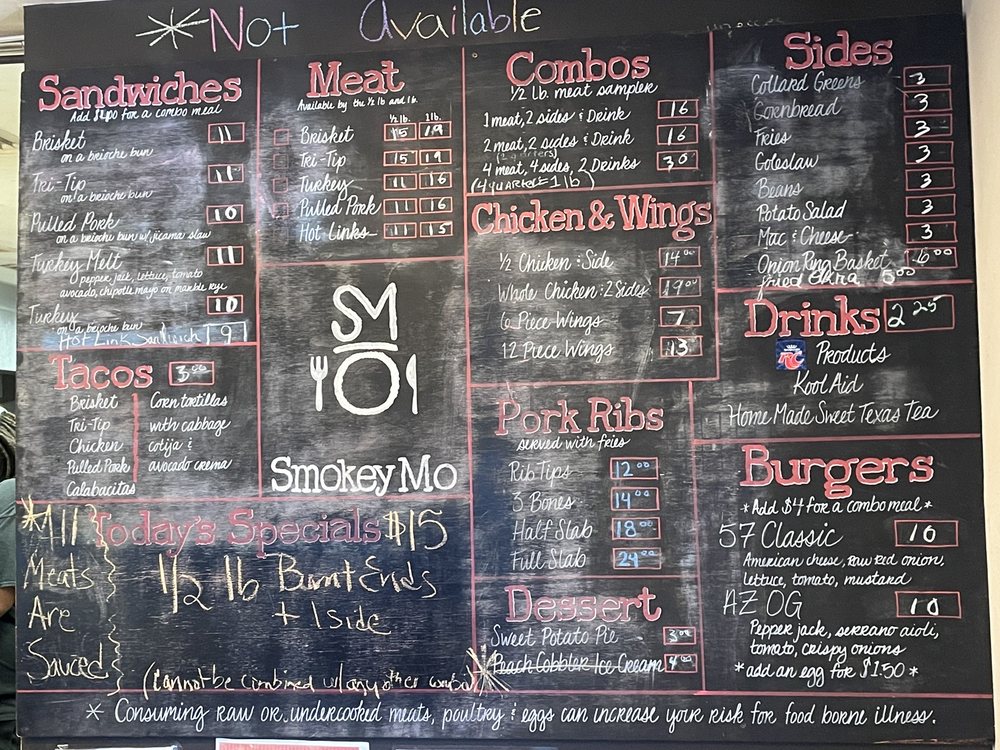 *Not Available
Sandwiches
Add $4.00 for a combo meal
Brisket 11
on a brioche bun
Tri-Tip 11
on a brioche bun
Pulled Pork 10
on a brioche bun w/ jicama slaw
Turkey Melt 11
pepper jack, lettuce, tomato
avocado, chipotle mayo on marble rye
Turkey 10
on a brioche bun
Hot Link Sandwich 9
Tacos 3.00
Brisket
Tri-Tip
Chicken
Pulled Pork
Calabacitas
Corn tortillas
with cabbage
cotija &
avocado crema
Meat
Available by the 1/2 lb and 1 lb.
1/2 lb. 1 lb.
Brisket 15 19
Tri-Tip 15 19
Turkey 11 16
Pulled Pork 11 16
Hot Links 11 15
SM
Smokey Mo
Combos
1/2 lb. meat sampler
1 meat, 2 sides & Drink 16
2 meat, 2 sides & Drink 16
4 meat, 4 sides, 2 Drinks 30
Chicken & Wings
1/2 Chicken & Side 14.00
Whole Chicken & 2 Sides 19.00
6 Piece Wings 7
12 Piece Wings 13
Pork Ribs
served with fries
Rib Tips 12.00
3 Bones 14.00
Half Slab 18.00
Full Slab 24.00
Dessert
Sweet Potato Pie 3.00
*Peach Cobbler Ice Cream 4.00
Sides
Collard Greens 3
Cornbread 3
Fries 3
Coleslaw 3
Beans 3
Potato Salad 3
Mac & Cheese 3
Onion Ring Basket 6.00
fried Okra 5.00
Drinks 2.25
RC Products
Kool Aid
Home Made Sweet Texas Tea
Burgers
*Add $4 for a combo meal*
57 Classic 10
American cheese, raw red onion,
lettuce, tomato, mustard
AZ OG 10
Pepper jack, serrano aioli,
tomato, crispy onions
*add an egg for $1.50*
Today's Specials $15
*All
Meats
Are
Sauced
1/2 lb Burnt Ends
+ 1 side
(cannot be combined w/ any other
* Consuming raw or undercooked meats, poultry & eggs can increase your risk for food borne illness.